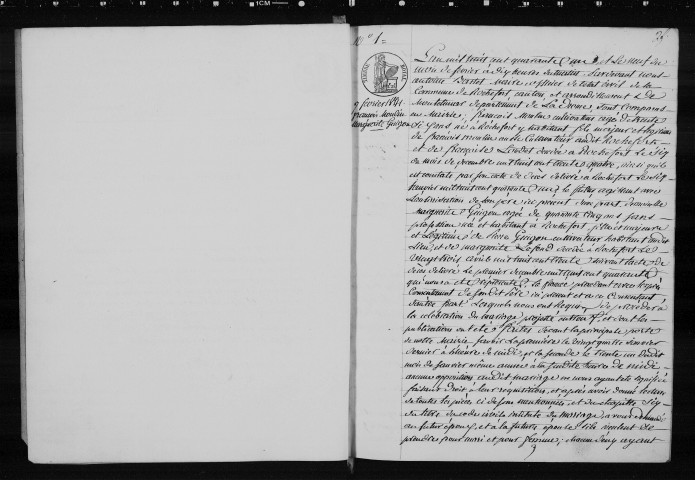 N° 1
9 février 1841
françois moulin
marguerite Guigon
L'an mil huit cent quarante un et le neuf du
mois de février à dix heures du matin, pardevant nous
antoine Bartet maire officier de l'état civil de la
Commune de Rochefort canton et arrondissement de
Montelimar département de la Drome, sont comparus
en mairie, françois Moulin cultivateur agé de trente
six ans né à Rochefort y habitant fils majeur et légitime
de françois moulin aussi cultivateur audit Rochefort
et de françoise décédée à Rochefort le six
du mois de décembre mil huit cent trente quatre, ainsi qu'il
est constaté par son acte de décès délivré à Rochefort le six
janvier mil huit cent quarante un, le futur agissant avec
l'autorisation de son père ici présent d'une part,
marguerite Guigon agée de quarante cinq ans sans
profession née et habitant à Rochefort fille majeure
et Légitime de Guigon cultivateur habitant audit
lieu, et de marguerite décédée à Rochefort le
vingt trois avril mil huit cent trente suivant l'acte de
décès délivré le premier décembre mil huit cent quarante
qui nous a été représenté, la future, procédant avec le
Consentement de son dit père ici présent et à ce Consentant
d'autre part Lesquels nous ont requis de procéder à
la célébration du mariage projetté entre eux et dont les
publications ont été faites devant la principale porte
de notre Mairie savoir la première le vingt quatre janvier
dernier à l'heure de midi, et la seconde le trente un dudit
mois de janvier même année à la susdite heure de midi
aucune opposition audit mariage ne nous ayant été signifiée
faisant droit à leur réquisition, et après avoir donné lecture
de toutes les pièces ci dessus mentionnées, et du chapitre six
du titre du code civil intitulé du mariage, avons demandé
au futur époux, et à la future épouse s'ils veulent se
prendre pour mari et pour femme; chacun d'eux ayant